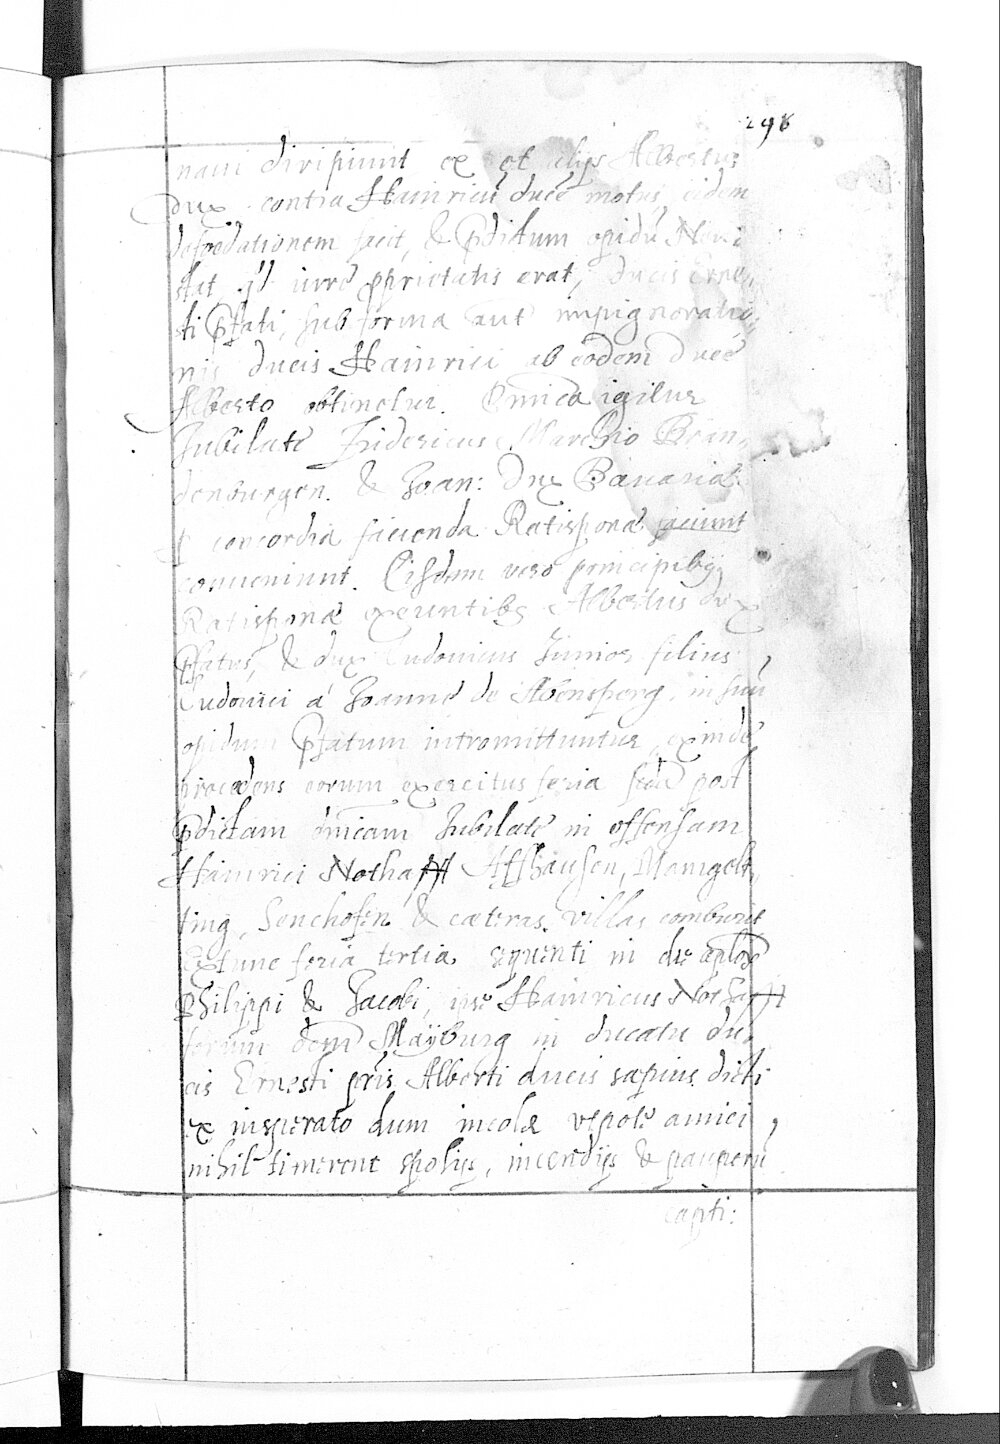 298
nani diripiunt ex et alijs Albertus
dux contra Hainricū ducē motus, eidem
depredationem facit, & p̄dictum opidū Neu
stat, qd iure p̄prietatis erat, ducis Erne,
sti p̄fati, sub forma aūt impignoratio,
nis ducis Hainrici ab eodem duce
Alberto obtinetur. Dn̄ica igitur
Jubilate Fridericus Marchio Bran,
denburgen. & Joan: Dux Bavariæ
p concordia facienda Ratisponæ faciunt
conueniunt. Eisdem vero principibꝫ
Ratisponæ exeuntibꝫ Albertus dux
p̄fatus, & dux Ludouicus Junior filius
Ludouici á Joanne de Abensperg, in suū
opidum p̄fatum intromittuntur, exinde
procedens eorum exercitus feria secūda post
p̄dictam dn̄icam Jubilate in offensam
Hainrici Nothafft Affhausen, Mangolt,
ting, Senchofen & cæteras villas comburit
Extunc feria tertia sequenti in die aplōꝝ
Philippi & Jacobi, ipse Hainricus Nothafft
forum dem̄ Mayburg in ducatu du,
cis Ernesti pr̄is Alberti ducis sæpius dicti
ex insperato dum incolæ vtpote amici,
nihil timerent spolijs, incendijs & pauperū
capti: